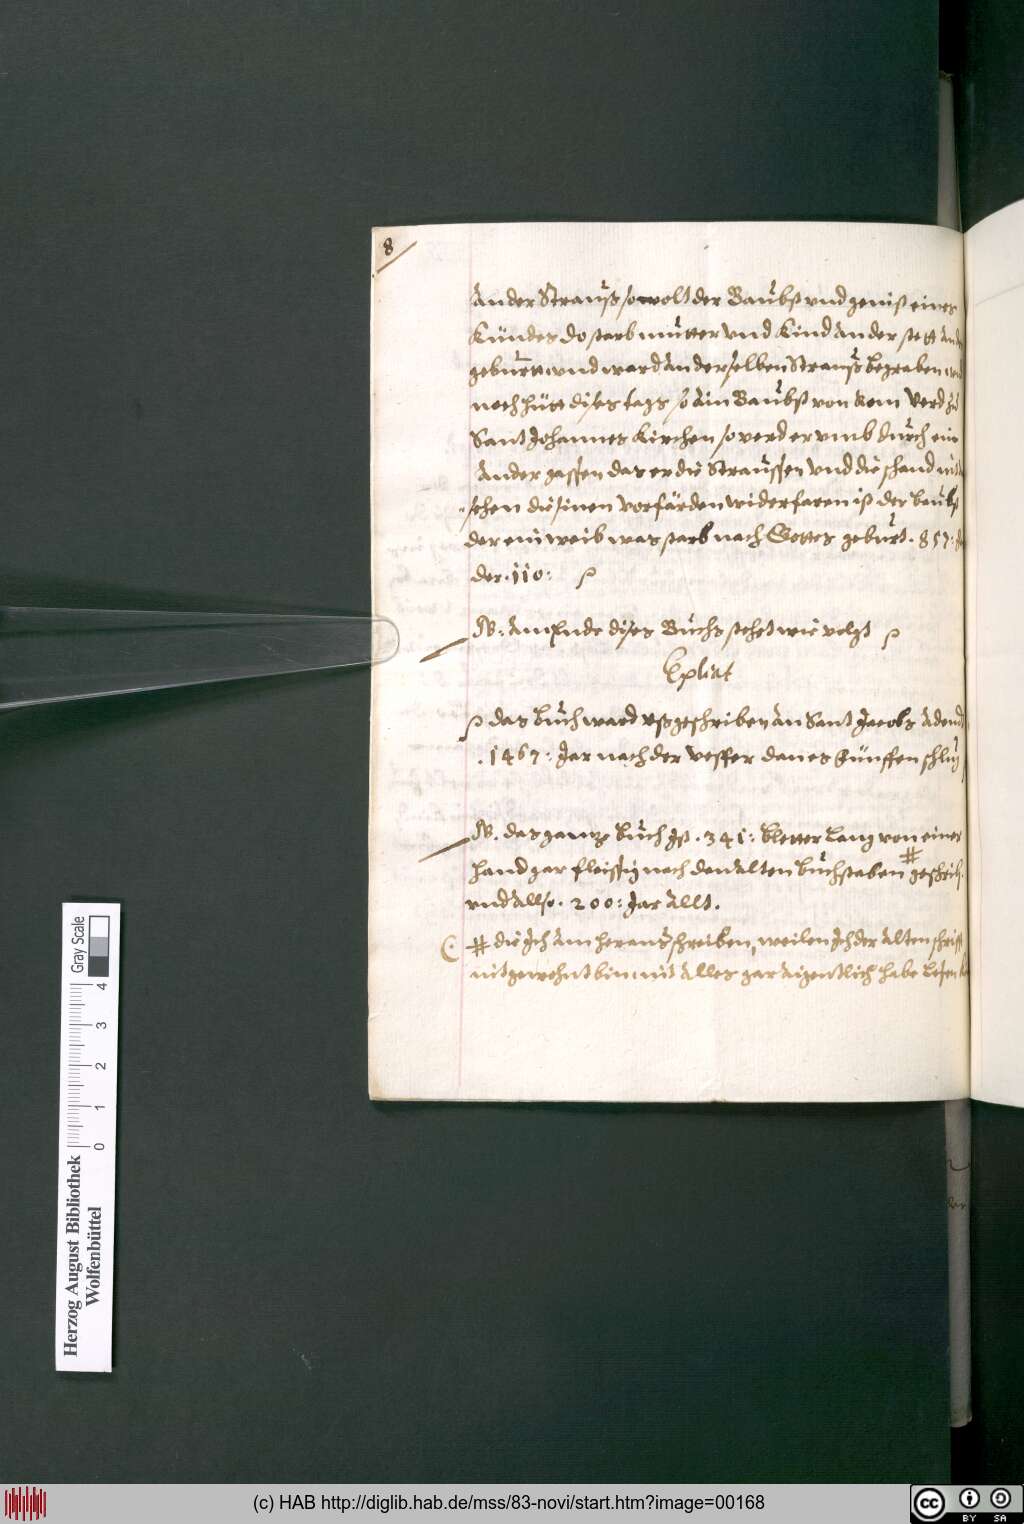 8
An der Strauß so wolt der Baubst vnd geniß eines
Kündes do starb mutter vnd Kind An der stett An der
geburtt vnd ward An derselben Strauß begraben vnd
noch hütt dises tags so Ain Baubst von Rom verd zu
Sant Johannes Kirchen so verd er vmb durch ein
Ander gassen das er die Straussen vnd die schand nit
sehen die sinen vorfarden widerfaren ist der baubst
der ein weib was starb nach Gottes geburt . 857 :
der . 110 :
NB: Am Ende dises Buchs stehet wie volgt
Explicit
das buch ward vßgeschriben An Sant Jacobs Abend
. 1467 : Jar nach der vesser dan es Fünffen schlug
NB. das gantze buch Jst . 341 : bletter lang von einer
Hand gar fleissig nach den Alten buchstaben # geschrib.
vnd Allso . 200 : Jar Allt .
# die Jch Am herausschreiben, weilen Jch der Alten schrifft
nit gewohnt bin nit Alles gar Aigentlich habe lesen
Herzog August Bibliothek
Wolfenbüttel
0 1 2 3 4
Gray Scale
(c) HAB http://diglib.hab.de/mss/83-novi/start.htm?image=00168
cc BY SA